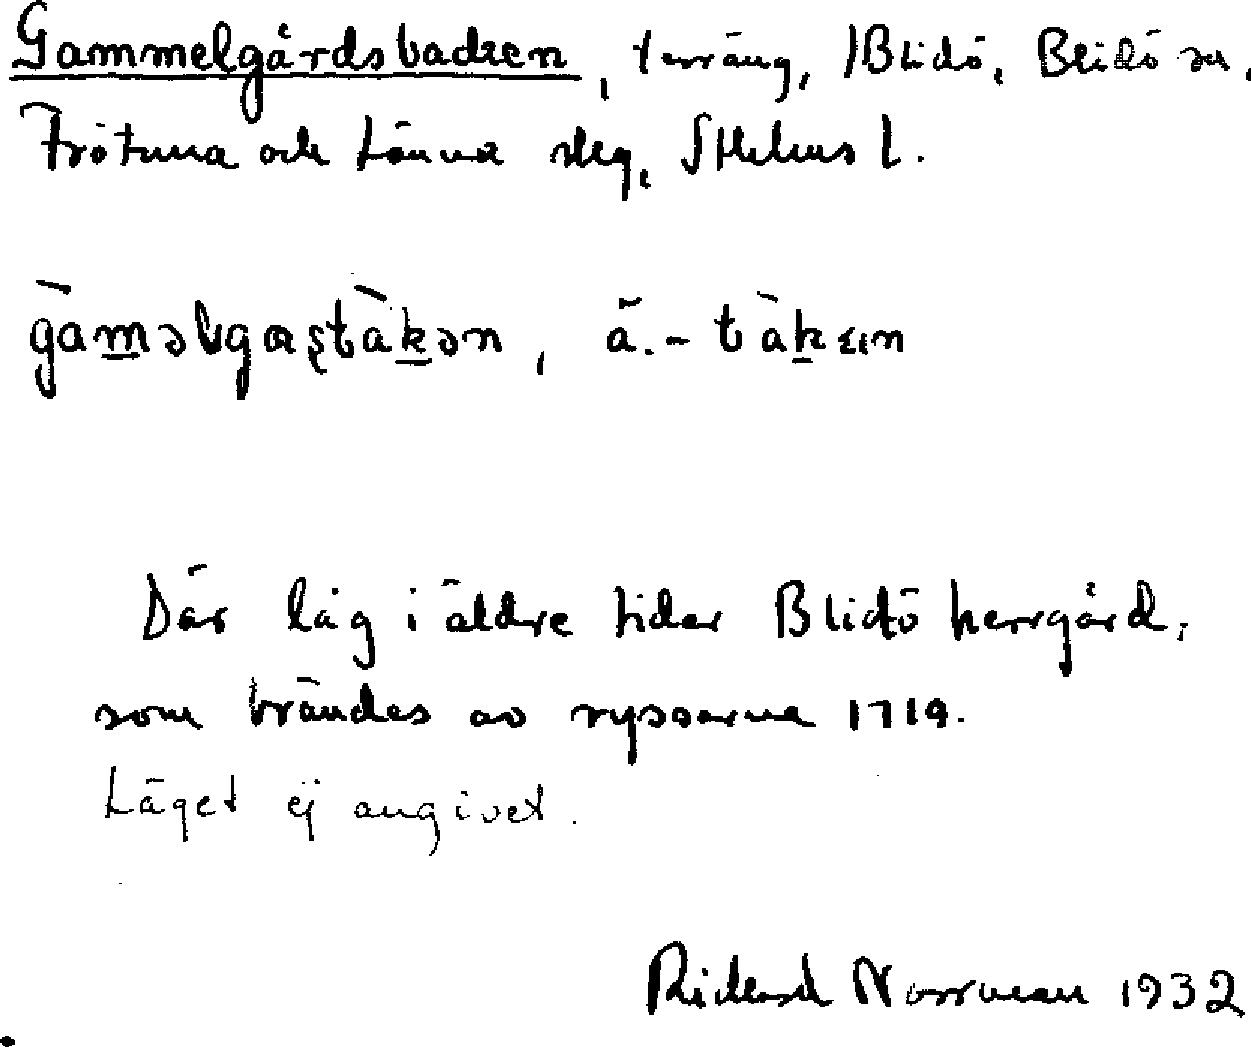 Gammelgårdsbacken, terräng, /Blidö, Blidö sn,
Frötuna och Länna slg, Sthlms l.
Där låg i äldre tider Blidö herrgård,
som brändes av ryssarna 1719.
Läget ej angivet.
Rickard Norrman 1932